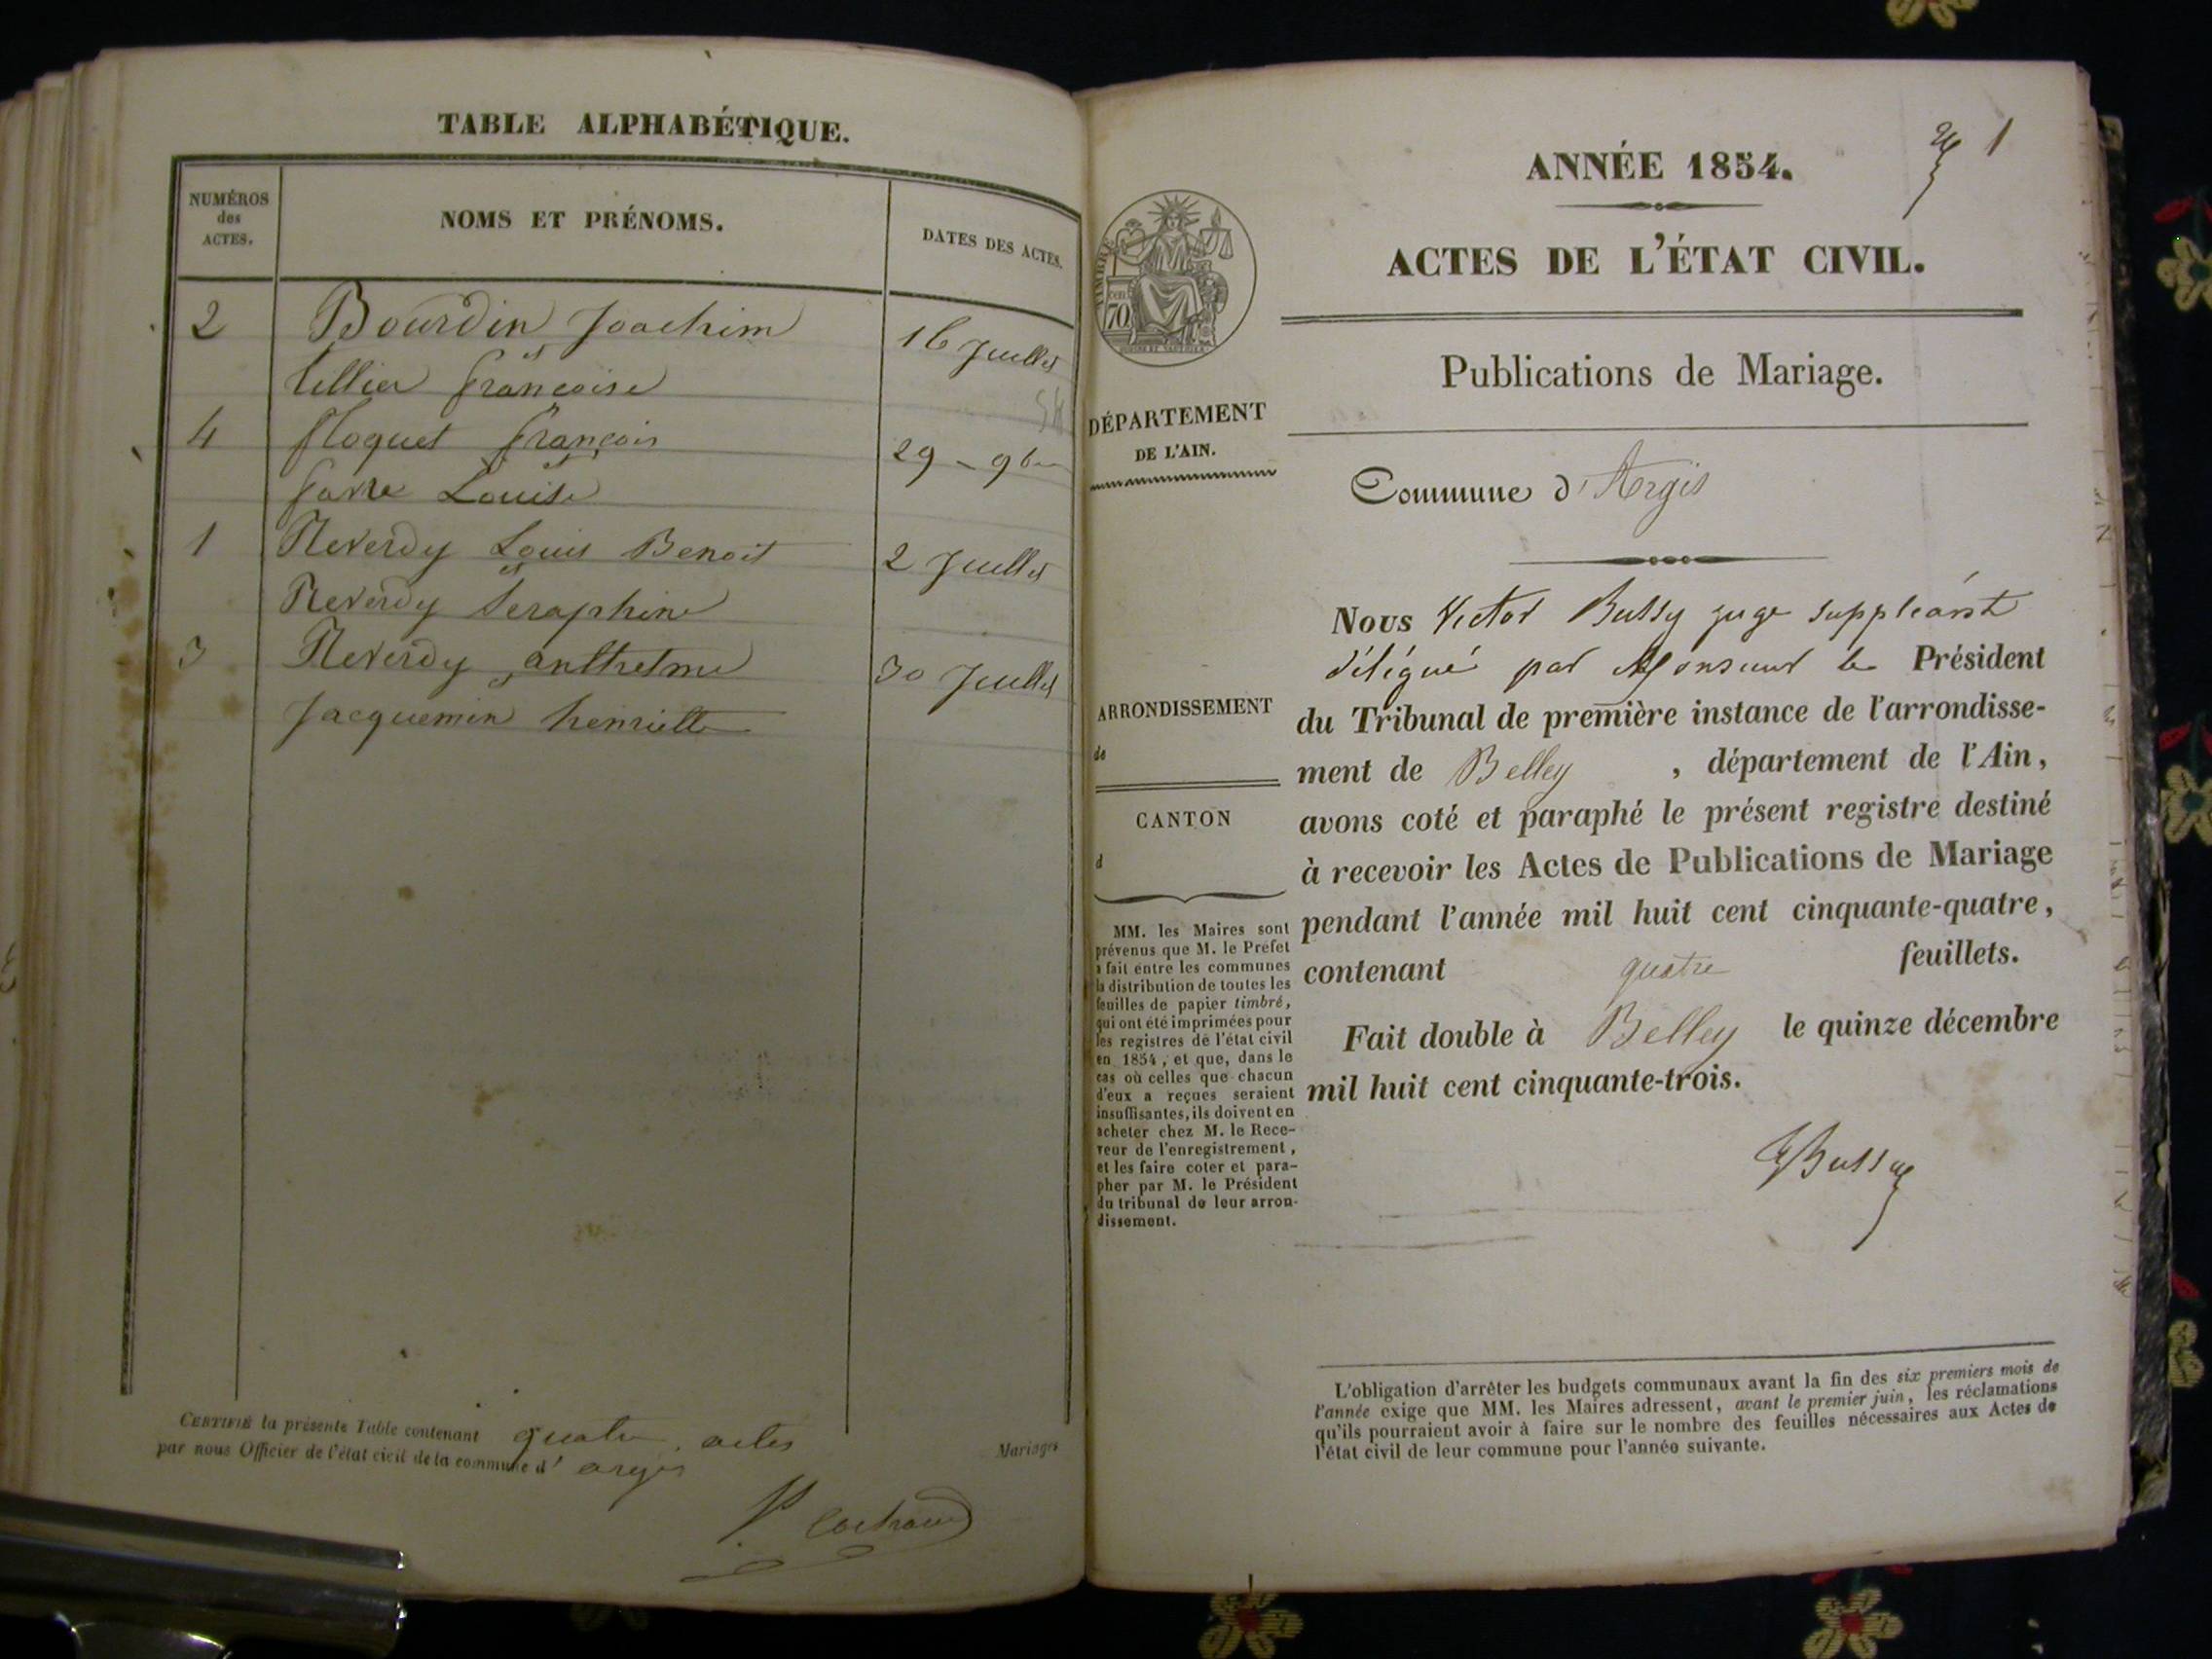 TABLE ALPHABÉTIQUE.
NUMÉROS
des
ACTES.
NOMS ET PRÉNOMS.
DATES DES ACTES.
2 Bourdin Joachim 16 Juillet
et
tillier françoise
4 floquet françois 29 - 9b
et
Louise
1 Reverdy Louis Benoit 2 Juillet
et
Reverdy Seraphine
3 Reverdy anthelme 30 Juillet
et
Jacquemin henriette
CERTIFIÉ la présente Table contenant quatre actes
par nous Officier de l'état civil de la commune d' argis
Mariages
1
ANNÉE 1854.
ACTES DE L'ÉTAT CIVIL.
TIMBRE
70
Publications de Mariage.
DÉPARTEMENT
DE L'AIN.
Commune d'Argis
ARRONDISSEMENT
de
CANTON
d
MM. les Maires sont
prévenus que M. le Préfet
a fait entre les communes
la distribution de toutes les
feuilles de papier timbré,
qui ont été imprimées pour
les registres de l'état civil
en 1854, et que, dans le
cas où celles que chacun
d'eux a reçues seraient
insuffisantes, ils doivent en
acheter chez M. le Rece-
veur de l'enregistrement,
et les faire coter et para-
pher par M. le Président
du tribunal de leur arron-
dissement.
Nous Victor Bussy juge suppléant
délégué par Monsieur le Président
du Tribunal de première instance de l'arrondisse-
ment de Belley , département de l'Ain,
avons coté et paraphé le présent registre destiné
à recevoir les Actes de Publications de Mariage
pendant l'année mil huit cent cinquante-quatre,
contenant quatre feuillets.
Fait double à Belley le quinze décembre
mil huit cent cinquante-trois.
VBussy
L'obligation d'arrêter les budgets communaux avant la fin des six premiers mois de
l'année exige que MM. les Maires adressent, avant le premier juin, les réclamations
qu'ils pourraient avoir à faire sur le nombre des feuilles nécessaires aux Actes de
l'état civil de leur commune pour l'année suivante.